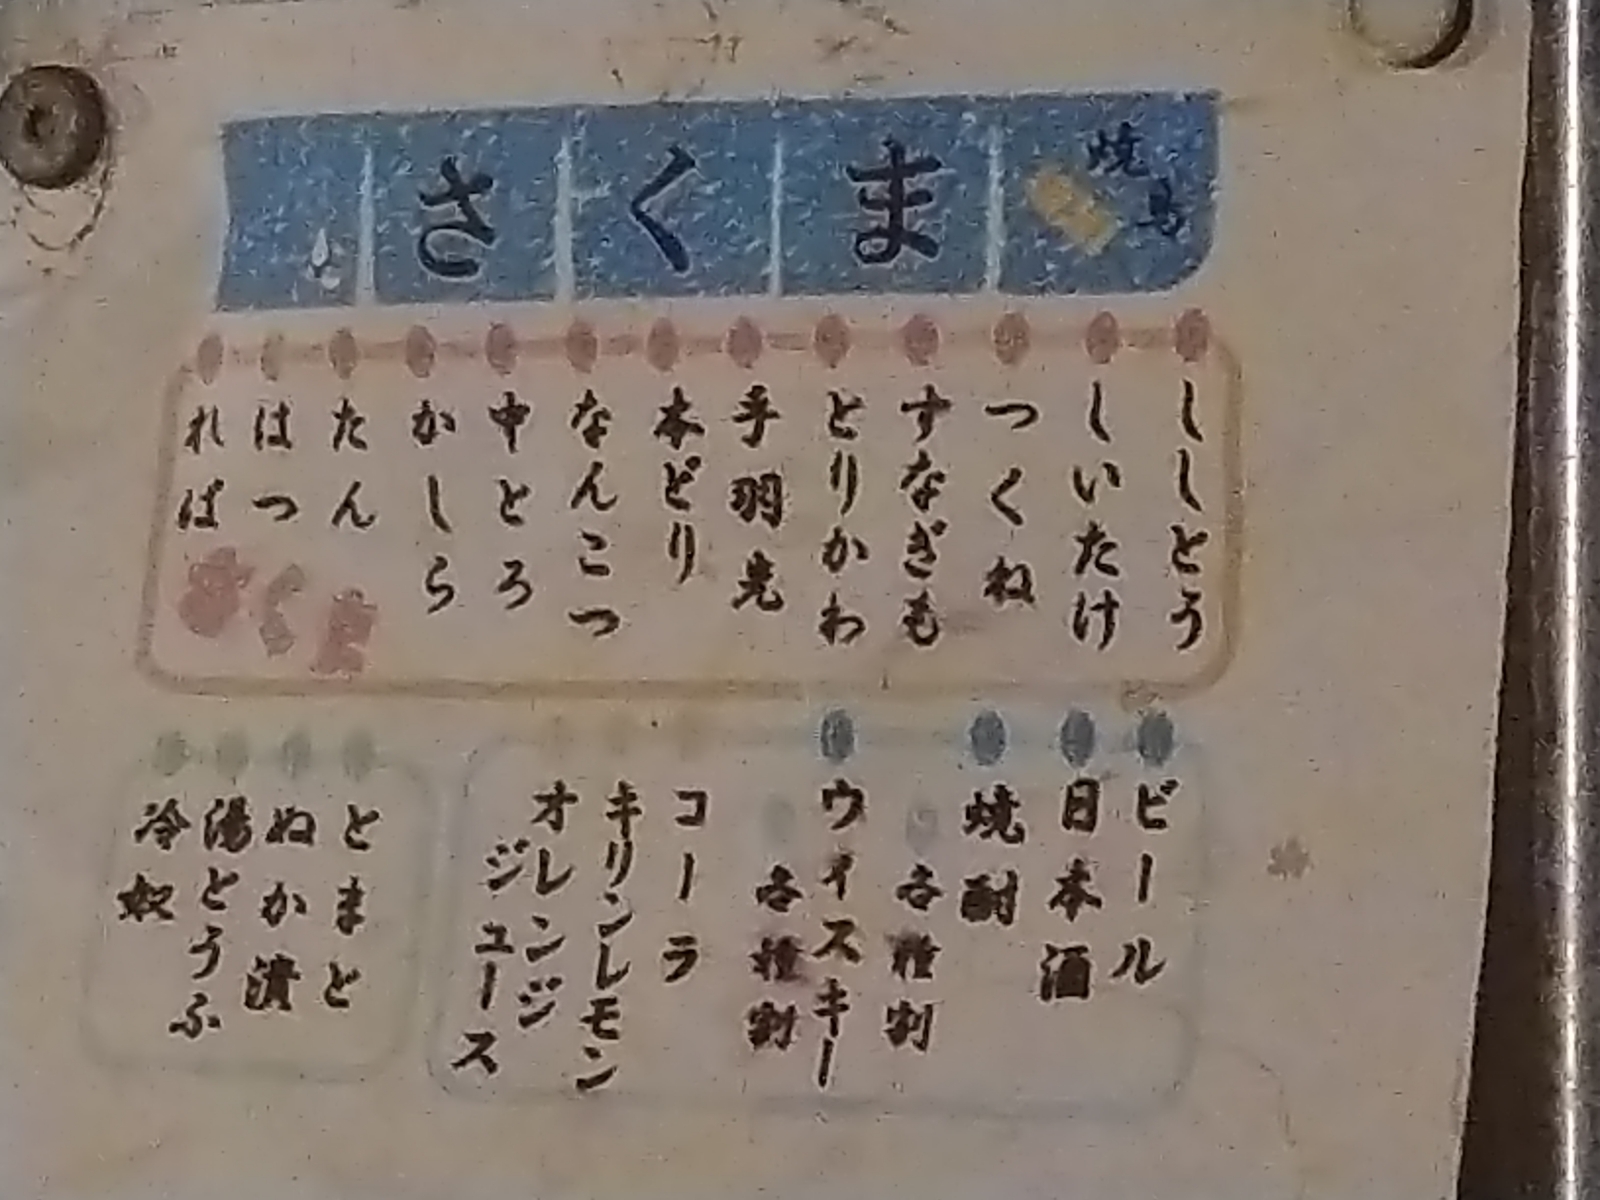 焼鳥
さくま
ししとう
しいたけ
つくね
すなぎも
とりかわ
手羽先
本どり
なんこつ
中とろ
かしら
たん
はつ
れば
さくま
ビール
日本酒
焼酎
各種割
ウイスキー
各種割
コーラ
キリンレモン
オレンジ
ジュース
とまと
ぬか漬
湯とうふ
冷奴